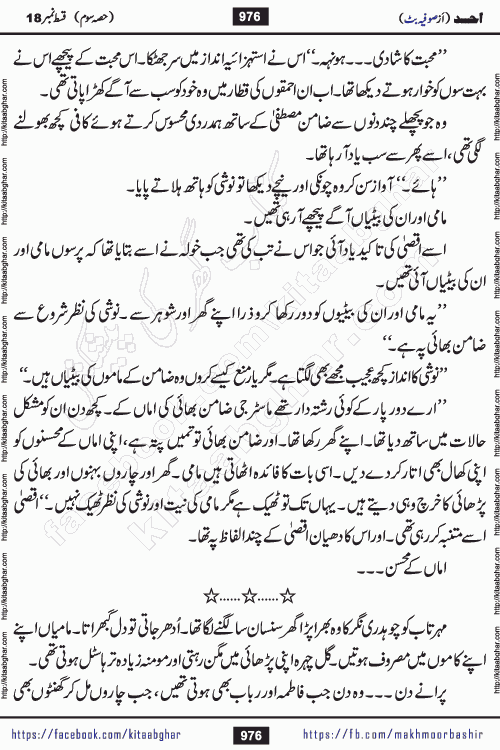 احسد (از صوفیہ بٹ)
976
(حصہ سوم) قسط نمبر 18
’’محبت کا شادی ۔۔۔ ہونہہ۔‘‘ اس نے استہزائیہ انداز میں سر جھٹکا۔ اس محبت کے پیچھے اس نے
بہت سوں کو خوار ہوتے دیکھا تھا۔ اب ان احمقوں کی قطار میں وہ خود کو سب سے آگے کھڑا پاتی تھی۔
وہ جو پچھلے چند دنوں سے ضامن مصطفیٰ کے ساتھ ہمدردی محسوس کرتے ہوئے کافی کچھ بھولنے
لگی تھی، اسے پھر سے سب یاد آ رہا تھا۔
’’ہائے۔‘‘ آواز سن کر وہ چونکی اور نیچے دیکھا تو نوشی کو ہاتھ ہلاتے پایا۔
مامی اور ان کی بیٹیاں آگے پیچھے آ رہی تھیں۔
اسے اقصیٰ کی تاکید یاد آئی جو اس نے تب کی تھی جب خولہ نے اسے بتایا تھا کہ پرسوں مامی اور
ان کی بیٹیاں آئی تھیں۔
’’یہ مامی اور ان کی بیٹیوں کو دور رکھا کرو ذرا اپنے گھر اور شوہر سے۔ نوشی کی نظر شروع سے
ضامن بھائی پہ ہے۔‘‘
’’نوشی کا انداز کچھ عجیب مجھے بھی لگتا ہے۔ مگر یار منع کیسے کروں وہ ضامن کے ماموں کی بیٹیاں ہیں۔‘‘
’’ارے دور پار کے کوئی رشتہ دار تھے ماسٹر جی ضامن بھائی کی اماں کے۔ کچھ دن ان کو مشکل
حالات میں ساتھ دیا تھا۔ اپنے گھر رکھا تھا۔ اور ضامن بھائی تو تمہیں پتہ ہے، اپنی اماں کے محسنوں کو
اپنی کھال بھی اتار کر دے دیں۔ اسی بات کا فائدہ اٹھاتی ہیں مامی۔ گھر اور چاروں بہنوں اور بھائی کی
پڑھائی کا خرچ وہی دیتے ہیں۔ یہاں تک تو ٹھیک ہے مگر مامی کی نیت اور نوشی کی نظر ٹھیک نہیں۔‘‘ اقصیٰ
اسے متنبہ کر رہی تھی۔ اور اس کا دھیان اقصیٰ کے چند الفاظ پہ تھا۔
اماں کے محسن ۔۔۔
☆......☆......☆
مہرتاب کو چوہدری نگر کا وہ بھرا پڑا گھر سنسان سا لگنے لگا تھا۔ اُدھر جاتی تو دل گھبراتا۔ مامیاں اپنے
اپنے کاموں میں مصروف ہوتیں۔ گل چہرہ اپنی پڑھائی میں مگن رہتی اور مومنہ زیادہ تر ہاسٹل ہوتی تھی۔
پرانے دن ۔۔۔ وہ دن جب فاطمہ اور رباب بھی ہوتی تھیں، جب چاروں مل کر گھنٹوں بھی
https://facebook.com/kitaabghar
976
https://fb.com/makhmoorbashir
http://kitaabghar.com